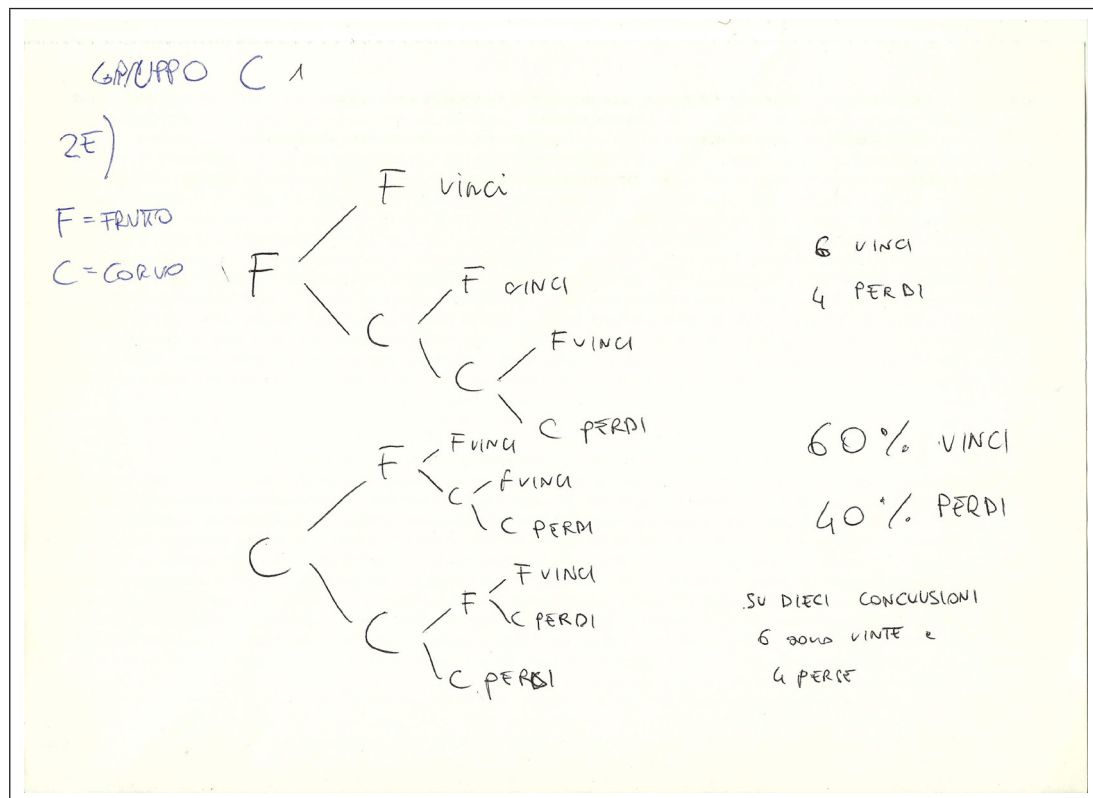 GRUPPO C 1
2E)
F = FRUTTO
C = CORVO
F vinci
F
F VINCI
C
F VINCI
C
C PERDI
F VINCI
F
F VINCI
C
C PERDI
C
F VINCI
F
C PERDI
C
C PERDI
6 VINCI
4 PERDI
60% VINCI
40% PERDI
SU DIECI CONCLUSIONI
6 sono VINTE e
4 PERSE